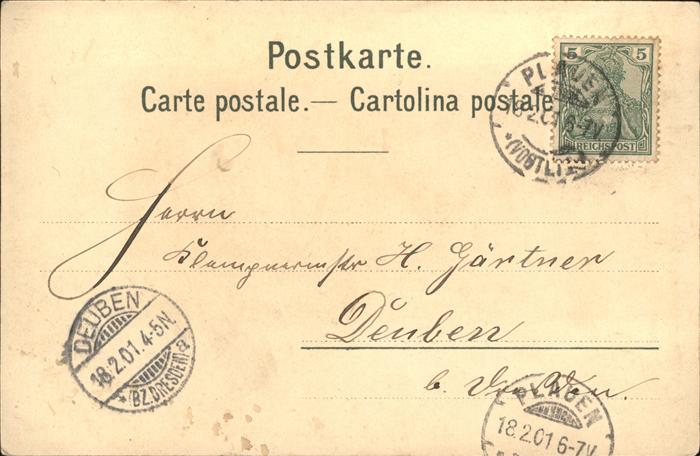 Postkarte.
Carte postale.— Cartolina postale
5 5
REICHSPOST
PLAUEN
18.2.01 6-7V
*(VOGTL.)
Herrn
Klempnermstr H. Gärtner
Deuben
b. Dresden.
DEUBEN
18.2.01.4-5N.
*(BZ.DRESDEN) a
PLAUEN
18.2.01 6-7V